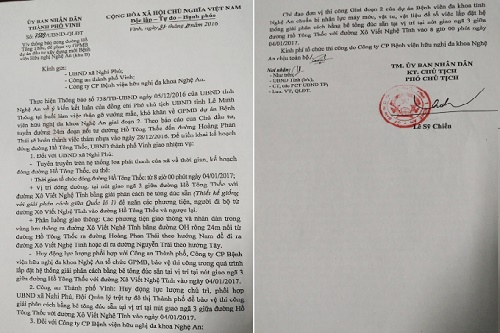 ỦY BAN NHÂN DÂN
THÀNH PHỐ VINH
CỘNG HÒA XÃ HỘI CHỦ NGHĨA VIỆT NAM
Độc lập - Tự do - Hạnh phúc
Số: /UBND-QLĐT
Vinh, ngày tháng năm 2016
V/v thông báo cùng đường Hồ
Tông Thốc, để phục vụ GPMB
dự án đầu tư xây dựng mới Bệnh
viện Hữu nghị Nghệ An
Kính gửi:
- UBND xã Nghi Phú;
- Công an thành phố Vinh;
- Công ty CP Bệnh viện hữu nghị đa khoa Nghệ An.
Thực hiện Thông báo số 738/TB-UBND ngày 05/12/2016 của UBND tỉnh
Nghệ An về ý kiến kết luận của đồng chí Phó chủ tịch UBND tỉnh Lê Minh
Thông tại buổi làm việc tháo gỡ vướng mắc, khó khăn về GPMB dự án Bệnh
viện hữu nghị đa khoa Nghệ An giai đoạn 2. Theo báo cáo của Chủ đầu tư,
tuyến đường 24m đoạn nối từ đường Hồ Tông Thốc đến đường Hoàng Phan
Thái sẽ hoàn thành việc thảm nhựa vào ngày 28/12/2016. Để triển khai kế hoạch
đóng đường Hồ Tông Thốc, UBND thành phố Vinh giao nhiệm vụ:
1. Đối với UBND xã Nghi Phú:
- Tuyên truyền trên hệ thống loa phát thanh của xã về thời gian, kế hoạch
đóng đường Hồ Tông Thốc, cụ thể:
+ Thời gian tổ chức đóng đường Hồ Tông Thốc: từ 8 giờ 00 phút ngày 04/01/2017;
+ Vị trí đóng đường, tại nút giao ngã 3 giữa đường Hồ Tông Thốc với
đường Xô Viết Nghệ Tĩnh bằng giải phân cách bê tông đúc sẵn (Thiết kế giống
với giải phân cách giữa Quốc lộ 1) để ngăn các phương tiện, người đi bộ từ
đường Xô Viết Nghệ Tĩnh vào đường Hồ Tông Thốc và ngược lại.
+ Phân luồng giao thông: Các phương tiện giao thông và nhân dân trong
vùng lưu thông ra đường Xô Viết Nghệ Tĩnh bằng đường QH rộng 24m nối từ
đường Hồ Tông Thốc ra đường Hoàng Phan Thái theo hướng Nam để đi ra
đường Xô Viết Nghệ Tĩnh hoặc đi ra đường Nguyễn Trãi theo hướng Tây.
- Huy động lực lượng phối hợp với Công an Thành phố, Công ty CP Bệnh
viện hữu nghị đa khoa Nghệ An tổ chức GPMB, bảo vệ thi công trong quá trình
lắp đặt hệ thống giải phân cách bằng bê tông đúc sẵn tại vị trí tại nút giao ngã 3
giữa đường Hồ Tông Thốc với đường Xô Viết Nghệ Tĩnh vào ngày 04/01/2017.
2. Công an Thành phố Vinh: Huy động lực lượng chủ trì, phối hợp
UBND xã Nghi Phú, Đội Quản lý trật tự đô thị Thành phố để bảo vệ thi công
giải phân cách bằng bê tông đúc sẵn tại vị trí tại nút giao ngã 3 giữa đường Hồ
Tông Thốc với đường Xô Viết Nghệ Tĩnh vào ngày 04/01/2017.
3. Đối với Công ty CP Bệnh viện hữu nghị đa khoa Nghệ An:
Chỉ đạo đơn vị thi công Giai đoạn 2 của dự án Bệnh viện đa khoa tỉnh
Nghệ An chuẩn bị nhân lực máy móc, vật tư, vật liệu để tổ chức việc lắp đặt hệ
thống giải phân cách bằng bê tông đúc sẵn tại vị trí tại nút giao ngã 3 giữa
đường Hồ Tông Thốc với đường Xô Viết Nghệ Tĩnh vào 8 giờ 00 phút ngày
04/01/2017.
Kính đề tổ chức thi công Công ty CP Bệnh viện hữu nghị đa khoa Nghệ
An chịu toàn bộ
Nơi nhận:
- Như trên;
- UBND Tỉnh (b/c);
- CT, các PCT UBND TP;
- Lưu: VT, QLĐT.
TM. ỦY BAN NHÂN DÂN
KT. CHỦ TỊCH
PHÓ CHỦ TỊCH
Lê Sỹ Chiến